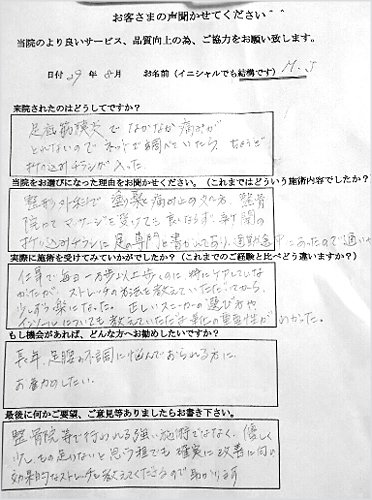 お客さまの声聞かせてください＾＾
当院のより良いサービス、品質向上の為、ご協力をお願い致します。
日付 29 年 8月 お名前（イニシャルでも結構です） M.J
来院されたのはどうしてですか？
足底筋膜炎で なかなか 痛みが
とれないので ネットで調べていたら、ちょうど
折り込みチラシが入った。
当院をお選びになった理由をお聞かせください。（これまではどういう施術内容でしたか？
整形外科で 痛み止めの 処方、整骨
院にて マッサージを受けても 良くならず、新聞の
折り込みチラシに 足の専門と書かしてあり、通勤途中 にあったので
実際に施術を受けてみていかがでしたか？（これまでのご経験と比べどう違いますか？）
仕事で毎日一万歩以上歩くのに 特にケアしてい
なかったが、ストレッチの方法を教えていただいてから、
少しずつ楽になった。 正しいスニーカーの選び方や
インソールについても 教えていただき 重要性が わかった。
もし機会があれば、どんな方へお勧めしたいですか？
長年、足腰の不調に悩んでおられる方に、
お薦めしたい。
最後に何かご要望、ご意見等ありましたらお書き下さい。
整骨院等で行われる強い施術ではなく、優しく
少し もの足りないと思う程でも 確実に改善に向い
効果的なストレッチも教えてくださるので 助かります